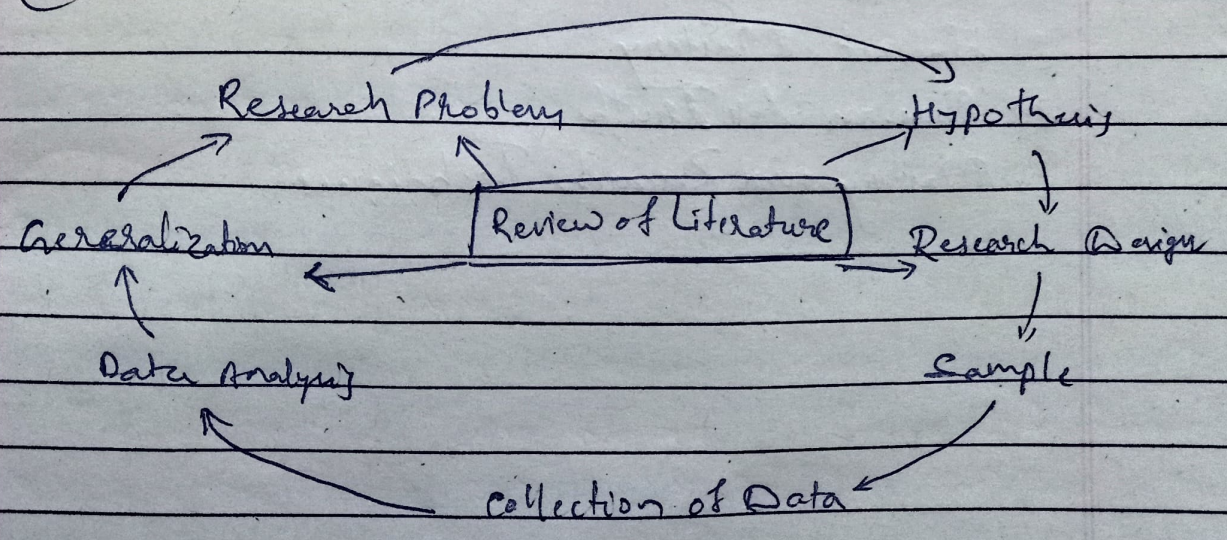 Research Problem Hypothesis
Generalization Review of Literature Research Design
Data Analysis Sample
Collection of Data